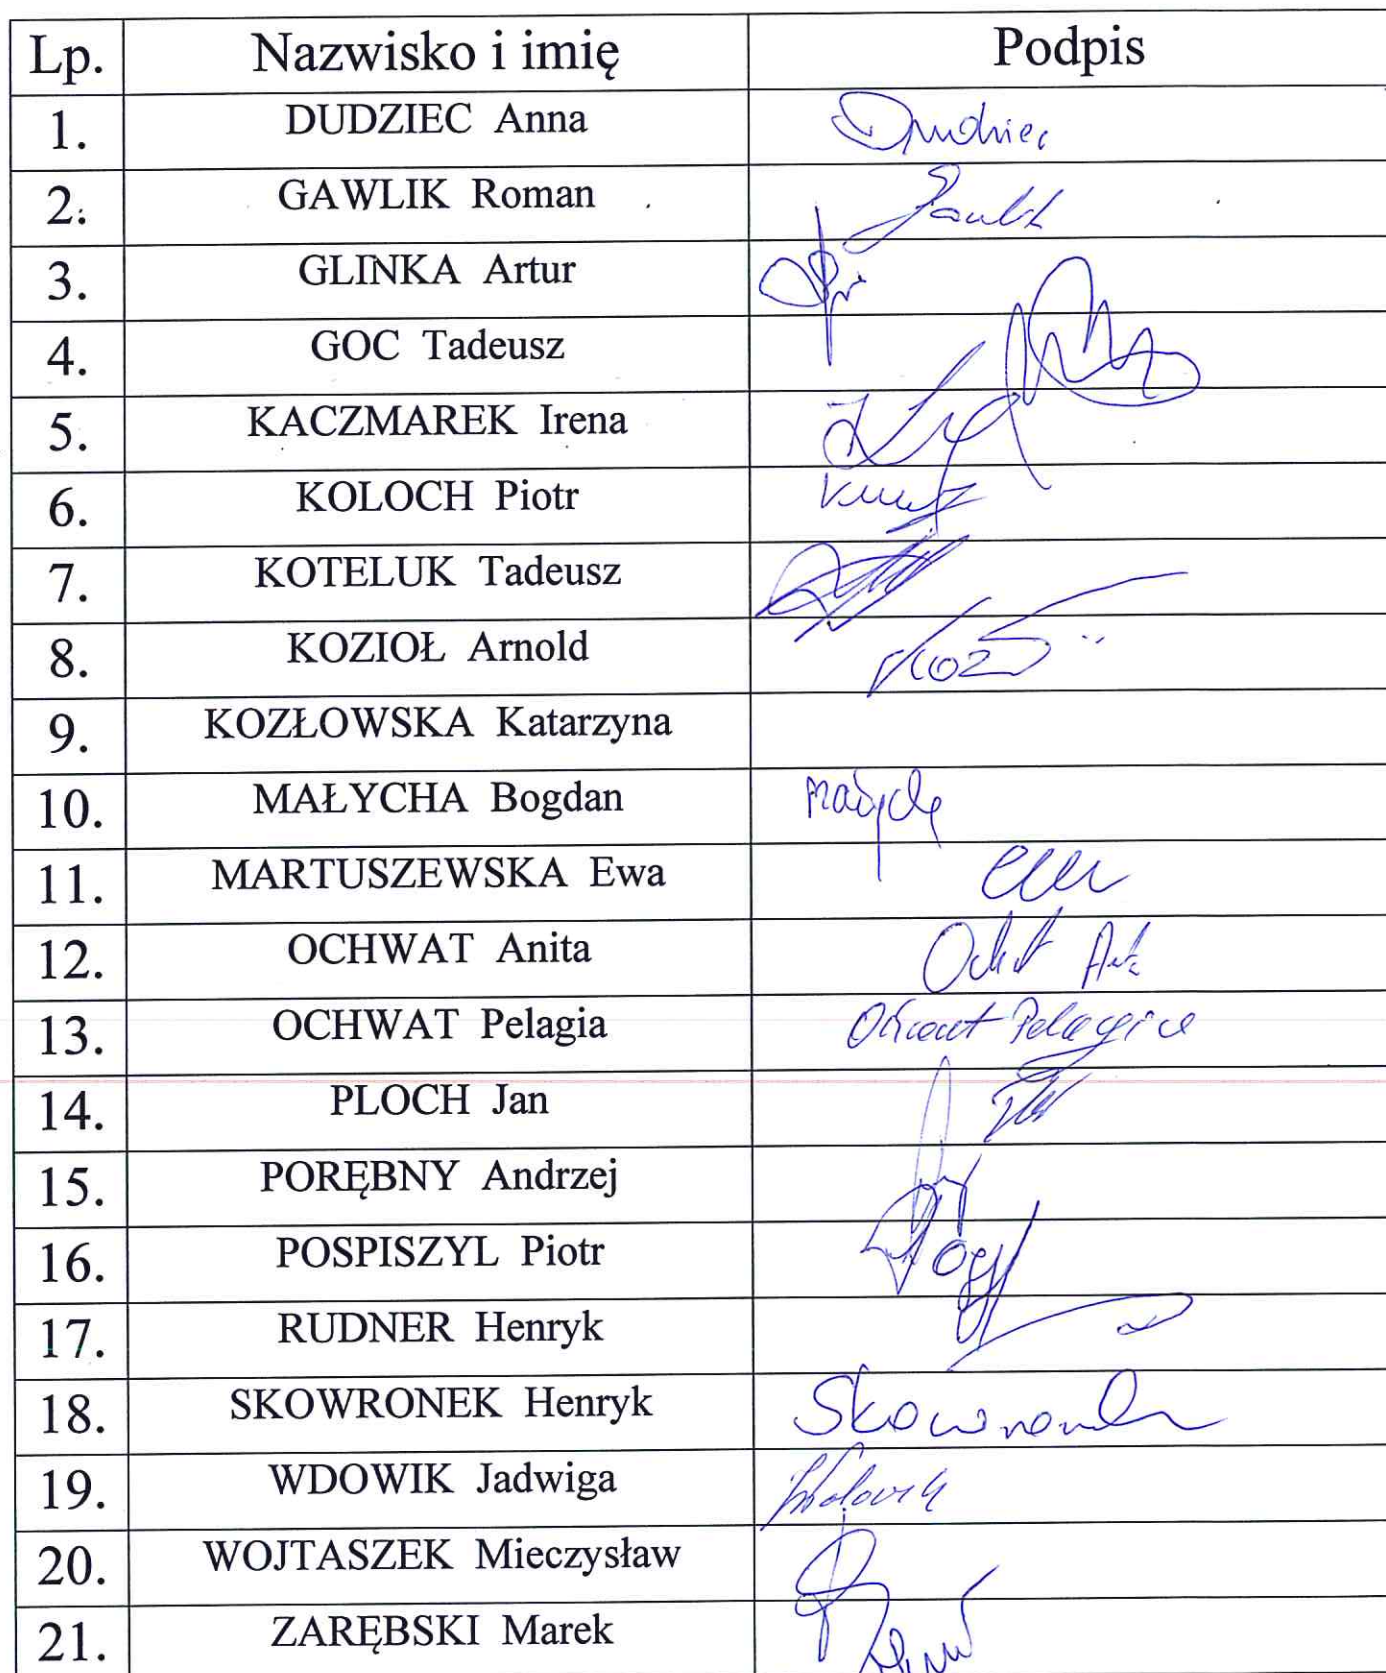 Lp. Nazwisko i imię Podpis
1. DUDZIEC Anna Dudziec
2. GAWLIK Roman Gawlik
3. GLINKA Artur
4. GOC Tadeusz
5. KACZMAREK Irena
6. KOLOCH Piotr
7. KOTELUK Tadeusz
8. KOZIOŁ Arnold
9. KOZŁOWSKA Katarzyna
10. MAŁYCHA Bogdan Małycha
11. MARTUSZEWSKA Ewa
12. OCHWAT Anita
13. OCHWAT Pelagia Ochwat Pelagia
14. PLOCH Jan
15. PORĘBNY Andrzej
16. POSPISZYL Piotr
17. RUDNER Henryk
18. SKOWRONEK Henryk Skowronek
19. WDOWIK Jadwiga Wdowik
20. WOJTASZEK Mieczysław
21. ZARĘBSKI Marek